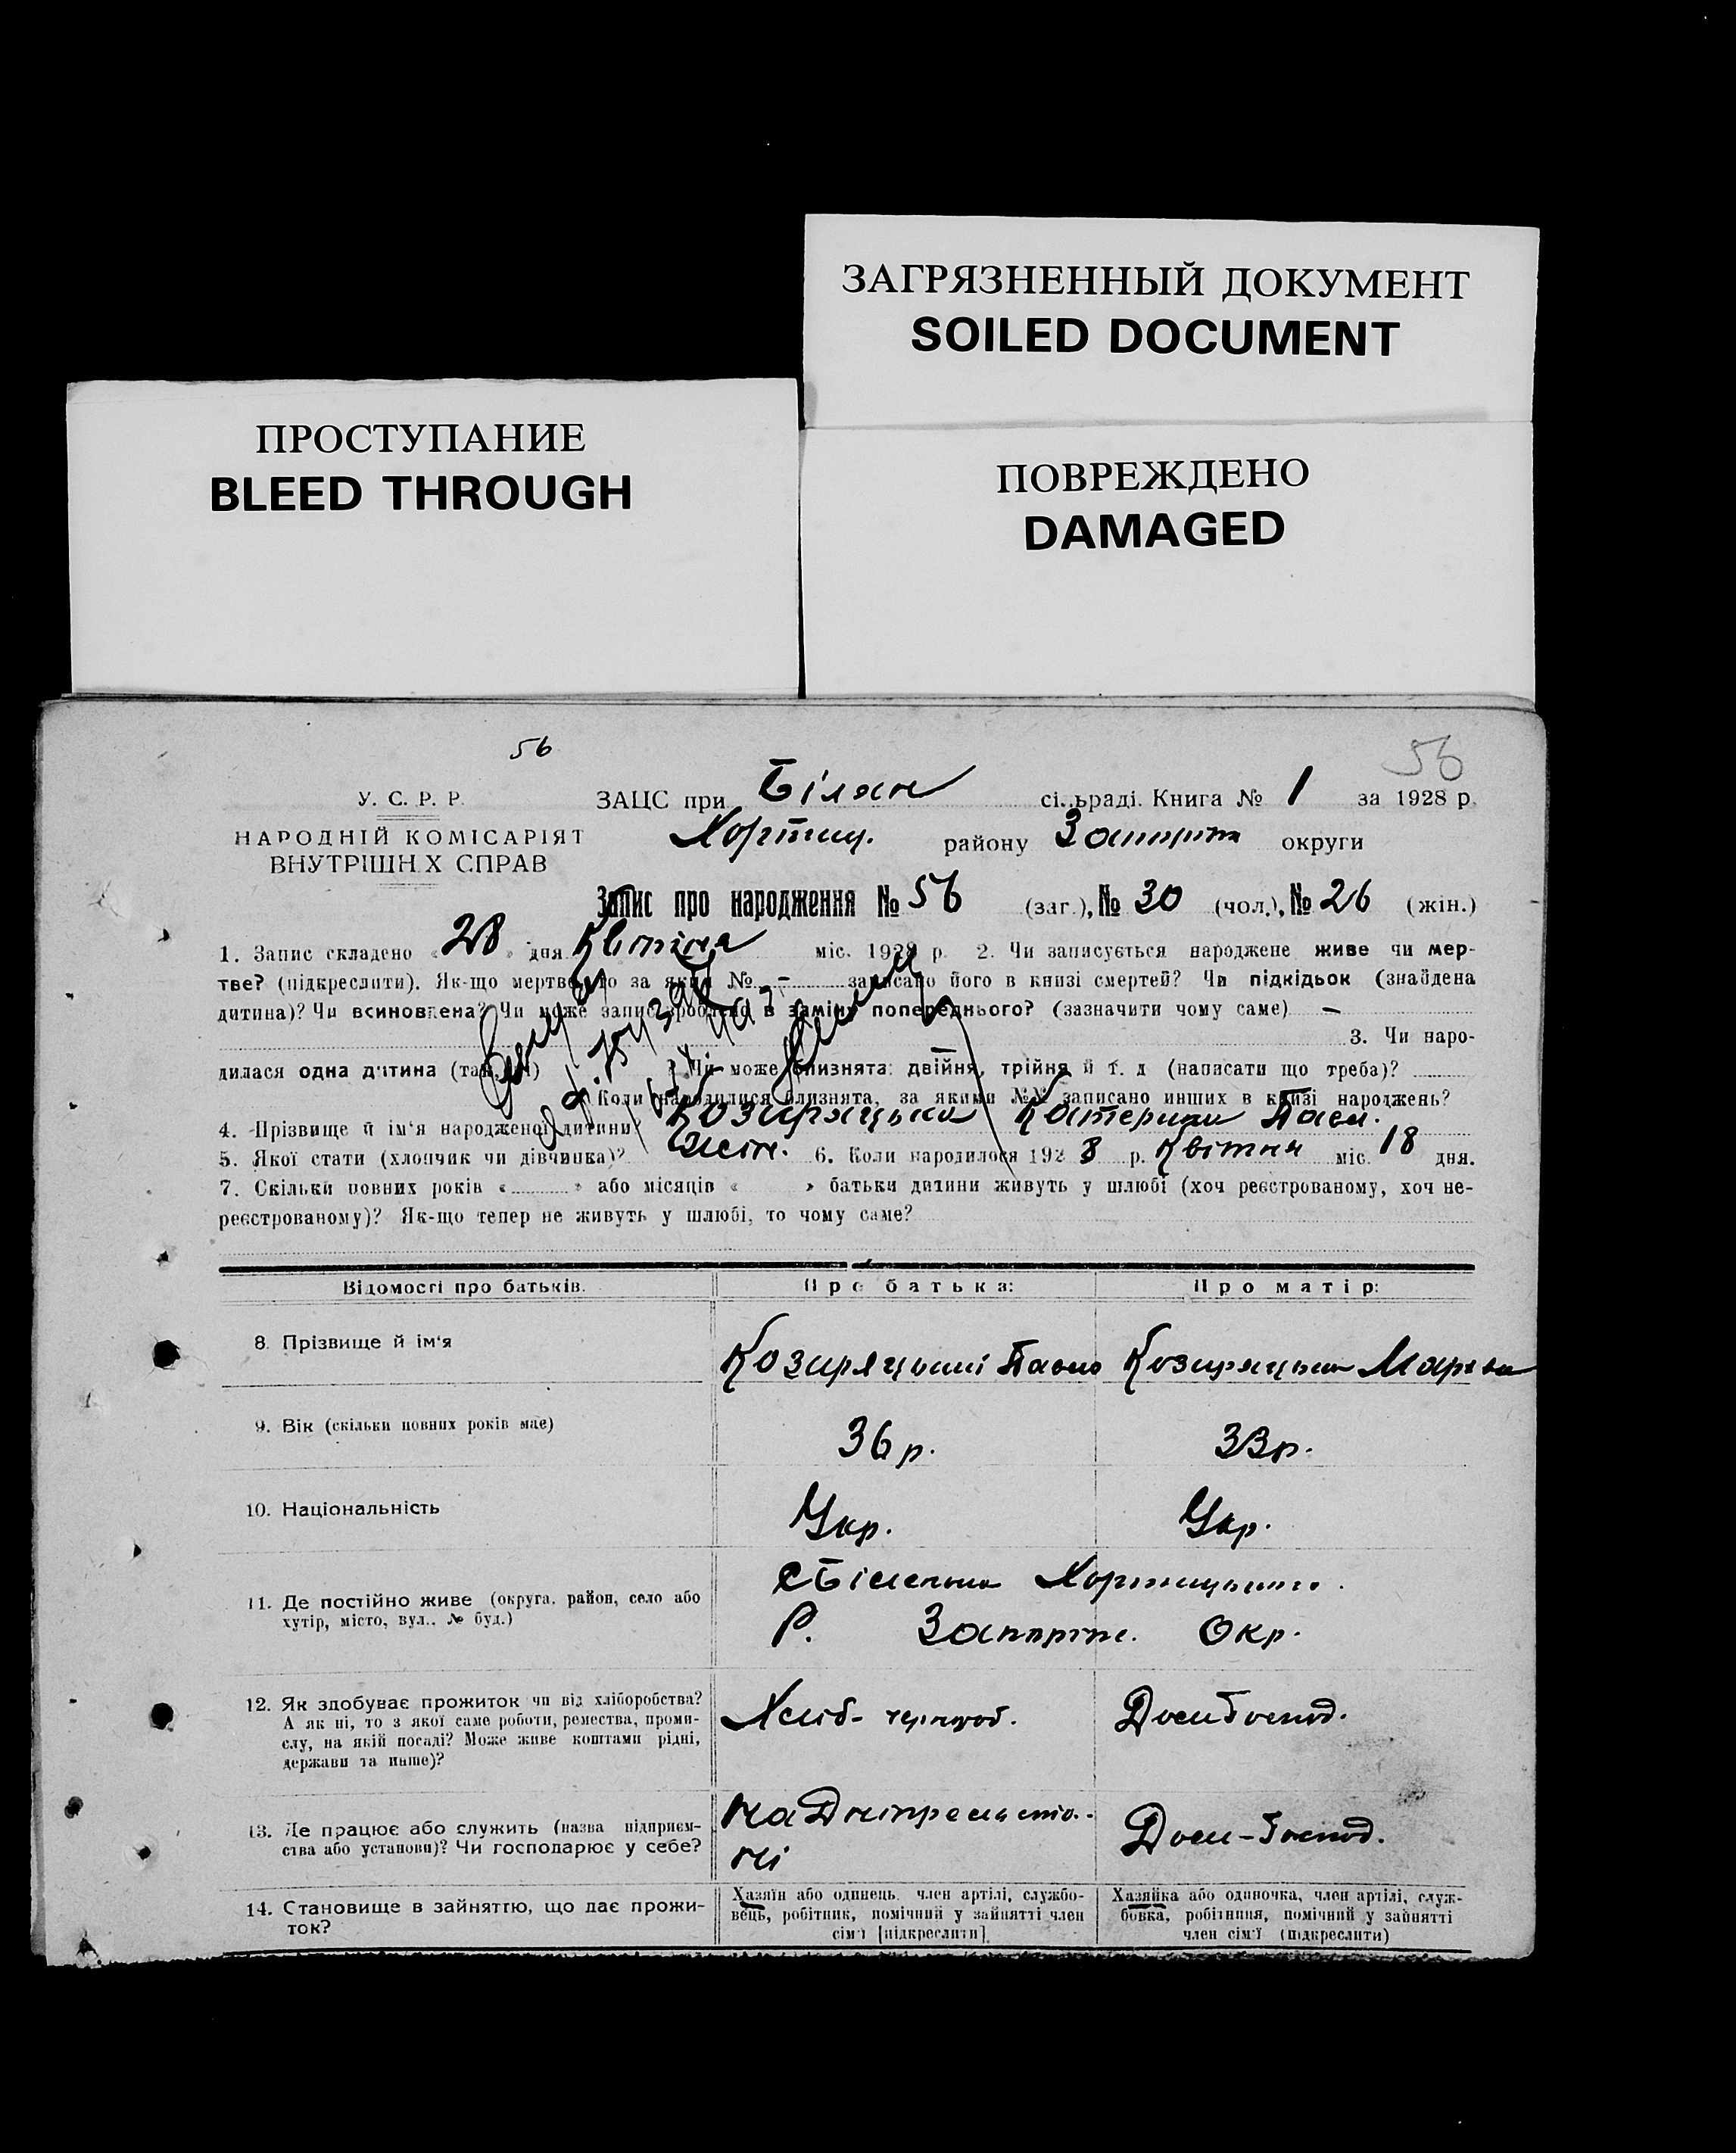 ЗАГРЯЗНЕННЫЙ ДОКУМЕНТ
SOILED DOCUMENT
ПРОСТУПАНИЕ
BLEED THROUGH
ПОВРЕЖДЕНО
DAMAGED
56
56
У. С. Р. Р.
НАРОДНІЙ КОМІСАРІЯТ
ВНУТРІШН Х СПРАВ
ЗАЦС при Білян сі. ьраді. Книга № 1 за 1928 р.
Хортиц. району Запоріж округи
Запис про народження № 56 (заг.), № 30 (чол.), № 26 (жін.)
1. Запис складено « 28 » дня Квітня міс. 1928 р. 2. Чи записується народжене живе чи мер-
тве? (підкреслити). Як-що мертве, то за яким № – записано його в книзі смертей? Чи підкідьок (знайдена
дитина)? Чи всиновлена? Чи може запис зроблено в заміну попереднього? (зазначити чому саме) –
3. Чи наро-
дилася одна дитина (так, ні) ? Чи може близнята: двійня, трійня й т. д (написати що треба)?
Коли народилися близнята, за якими №№ записано инших в книзі народжень?
4. Прізвище й ім'я народженої дитини? Козиряцька Катерина Павл.
5. Якої стати (хлопчик чи дівчинка)? Жін. 6. Коли народилося 192 8 р. Квітня міс. 18 дня.
7. Скільки повних років « » або місяців « » батьки дитини живуть у шлюбі (хоч реєстрованому, хоч не-
реєстрованому)? Як-що тепер не живуть у шлюбі, то чому саме?
Відомості про батьків. Про батька: Про матір:
8. Прізвище й ім'я Козиряцький Павло Козиряцька Марія
9. Вік (скільки повних років має) 36 р. 33 р.
10. Національність Укр. Укр.
11. Де постійно живе (округа, район, село або
хутір, місто, вул., № буд.)
с Біленьке Хортицького
Р. Запоріж. Окр.
12. Як здобуває прожиток чи від хліборобства?
А як ні, то з якої саме роботи, ремества, проми-
слу, на якій посаді? Може живе коштами рідні,
держави та инше)?
Хліб- чорнороб. Дом Господ.
13. Де працює або служить (назва підприєм-
ства або установи)? Чи господарює у себе?
на Дніпрельста-
ні
Дом-Господ.
14. Становище в зайняттю, що дає прожи-
ток?
Хазяїн або одинець, член артілі, службо-
вець, робітник, помічний у зайнятті член
сім'ї [підкреслити].
Хазяйка або одиночка, член артілі, служ-
бовка, робітниця, помічний у зайнятті
член сім'ї (підкреслити)